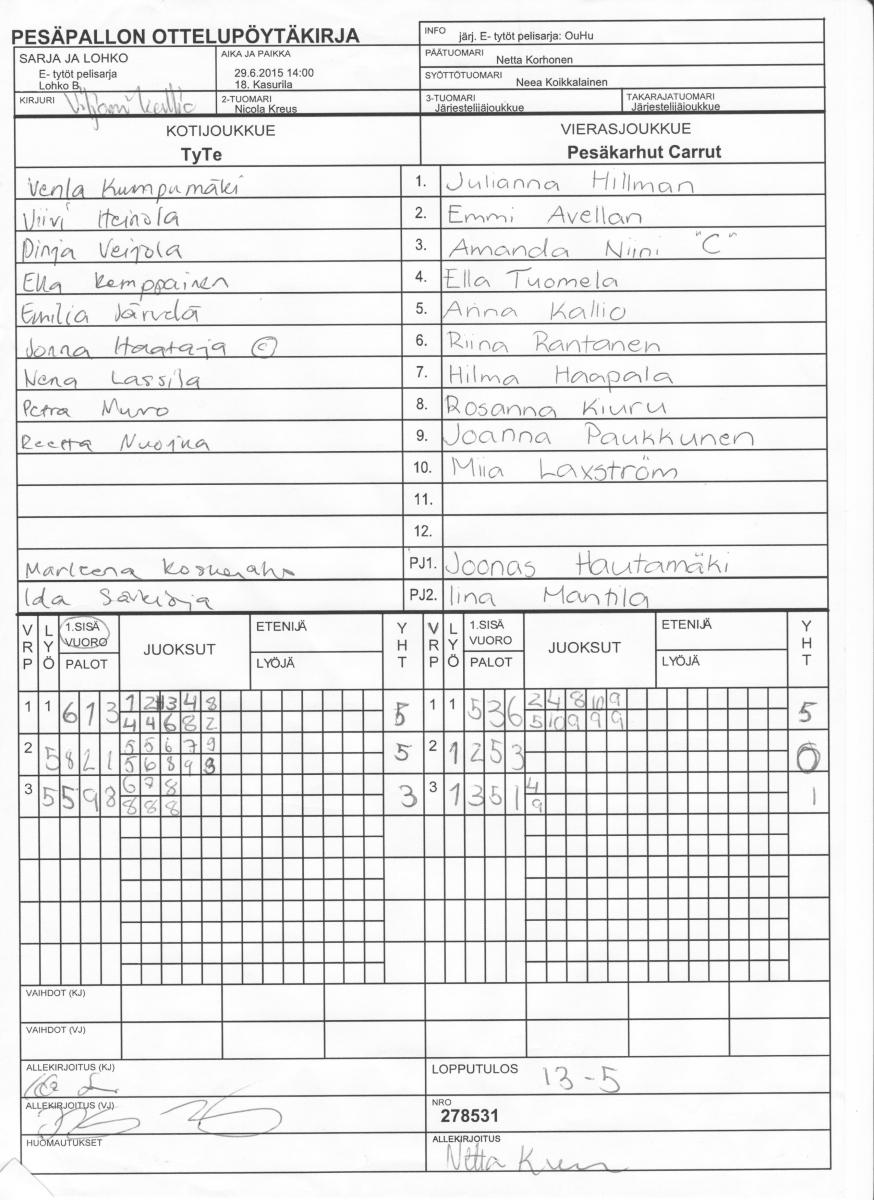 PESÄPALLON OTTELUPÖYTÄKIRJA
INFO järj. E- tytöt pelisarja: OuHu
SARJA JA LOHKO
E- tytöt pelisarja
Lohko B
AIKA JA PAIKKA
29.6.2015 14:00
18. Kasurila
PÄÄTUOMARI
Netta Korhonen
SYÖTTÖTUOMARI
Neea Koikkalainen
KIRJURI Viljami Kallio
2-TUOMARI
Nicola Kreus
3-TUOMARI
Järjestelijäjoukkue
TAKARAJATUOMARI
Järjestelijäjoukkue
KOTIJOUKKUE
TyTe
VIERASJOUKKUE
Pesäkarhut Carrut
Venla Kumpumäki 1. Julianna Hillman
Viivi Heinola 2. Emmi Avellan
Pinja Veijola 3. Amanda Niini "C"
Ella Kemppainen 4. Ella Tuomela
Emilia Järvelä 5. Anna Kallio
Jonna Haataja © 6. Riina Rantanen
Nena Lassila 7. Hilma Haapala
Petra Muro 8. Rosanna Kiuru
Reetta Nuojua 9. Joanna Paukkunen
10. Miia Laxström
11.
12.
PJ1. Joonas Hautamäki
Ida PJ2. Iina Mantila
VRP LYÖ 1.SISÄ VUORO PALOT JUOKSUT ETENIJÄ LYÖJÄ YHT VRP LYÖ 1.SISÄ VUORO PALOT JUOKSUT ETENIJÄ LYÖJÄ YHT
1 1 6 1 3 1 2 3 4 8 5 1 1 5 3 6 2 4 8 10 9 5
4 4 6 8 2 5 10 9 9 9
2 5 8 2 1 5 5 6 7 9 5 2 1 2 5 3 0
5 6 8 9 3
3 5 5 9 8 6 7 8 3 3 1 3 5 1 4 1
8 8 8 9
VAIHDOT (KJ)
VAIHDOT (VJ)
ALLEKIRJOITUS (KJ)
LOPPUTULOS 13-5
ALLEKIRJOITUS (VJ)
NRO
278531
HUOMAUTUKSET
ALLEKIRJOITUS
Netta